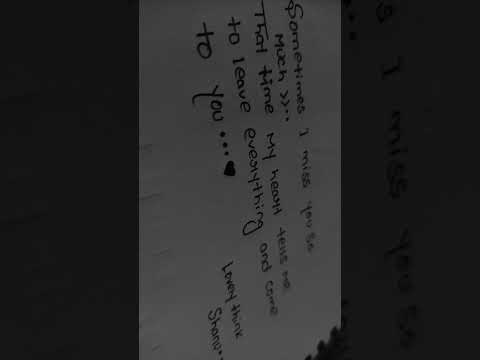 Sometimes I miss you so
Much >>..
That time My heart tells me
to leave everything and come
to you...♥
Lovey think